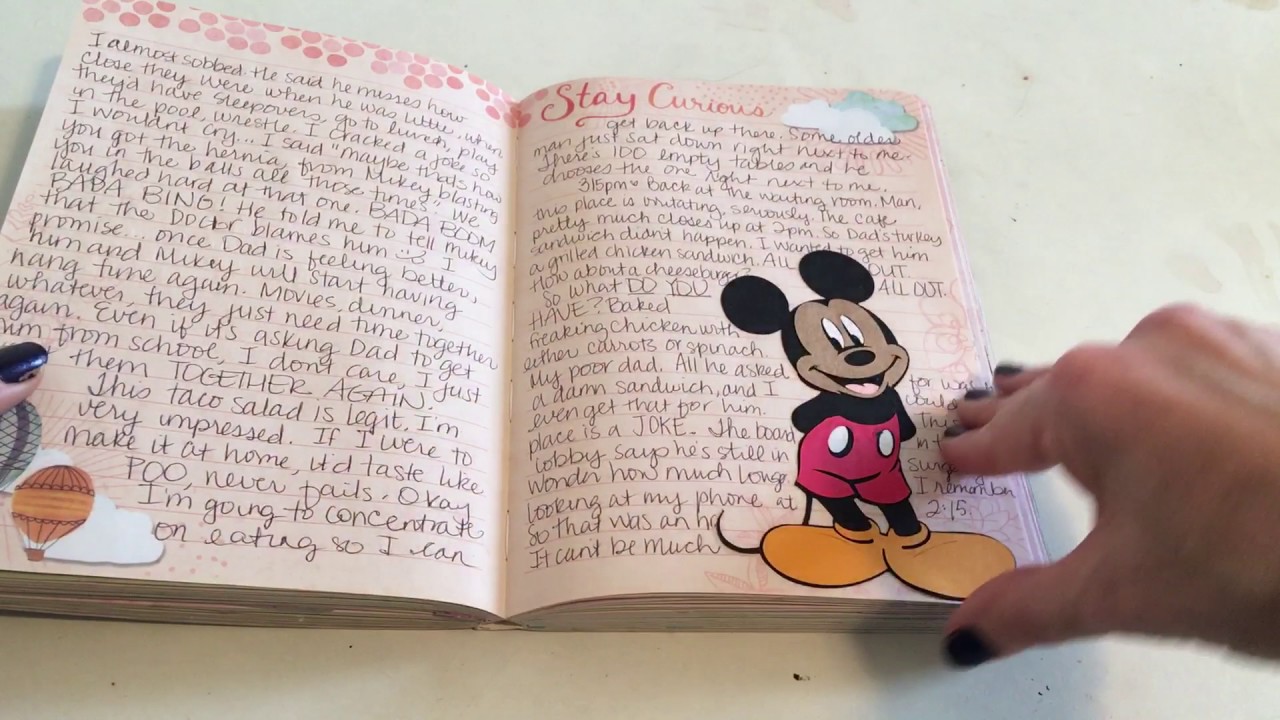 I almost sobbed. He said he misses how
close they were when he was little, when
they'd have sleepovers, go to lunch, play
in the pool, wrestle. I cracked a joke so
I wouldnt cry... I said "maybe that's how
you got the hernia, from Mikey blasting
you in the balls all those times". We
laughed hard at that one. BADA BOOM
BADA BING! He told me to tell mikey
that the Doctor blames him I
promise... once Dad is feeling better,
him and Mikey will start having
hang time again. Movies, dinner,
whatever, they just need time together
again. Even if it's asking Dad to get
him from school, I dont care, I just
them TOGETHER AGAIN.
This taco salad is legit. I'm
very impressed. If I were to
make it at home, it'd taste like
POO, never fails. Okay
I'm going to concentrate
on eating so I can
Stay Curious
get back up there. Some older
man just sat down right next to me.
There's 100 empty tables and he
chooses the one right next to me.
315pm Back at the waiting room. Man,
this place is irritating, seriously. The cafe
pretty much closes up at 2pm. So Dad's turkey
sandwich didn't happen. I wanted to get him
a grilled chicken sandwich. ALL OUT
How about a cheeseburger? ALL OUT.
so what DO YOU
HAVE? Baked
freaking chicken with
either carrots or spinach.
My poor dad. All he asked for was
a damn sandwich, and I
even get that for him.
place is a JOKE. The board
lobby says he's still in
wonder how much longer
looking at my phone at 2:15.
so that was an
It cant be much
I remember